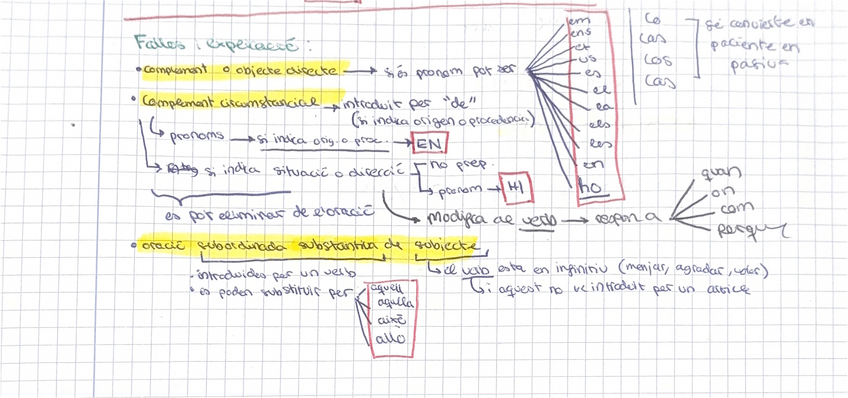 Falles i expiració:
• complement o objecte directe → si és pronom pot ser
em
ens
et
us
es
el
la
els
les
en
ho
Lo
Las
Los
Las
se convierte en
paciente en
pasiva
• Complement circumstancial → introduit per "de"
(si indica origen o procedència.)
↳ pronoms → si indica orig. o proc. → EN
↳ si indica situació o direcció
no prep.
↳ pronom → HI
es pot eliminar de l'oració
→ modifica al verb → respon a
quan
on
com
perquè
• oració subordinada substantiva de subjecte
- introduides per un verb
• es poden substituir per
aquell
aquella
això
allò
↳ el verb esta en infinitiu (menjar, agradar, voler)
↳ si aquest no ve introduit per un article